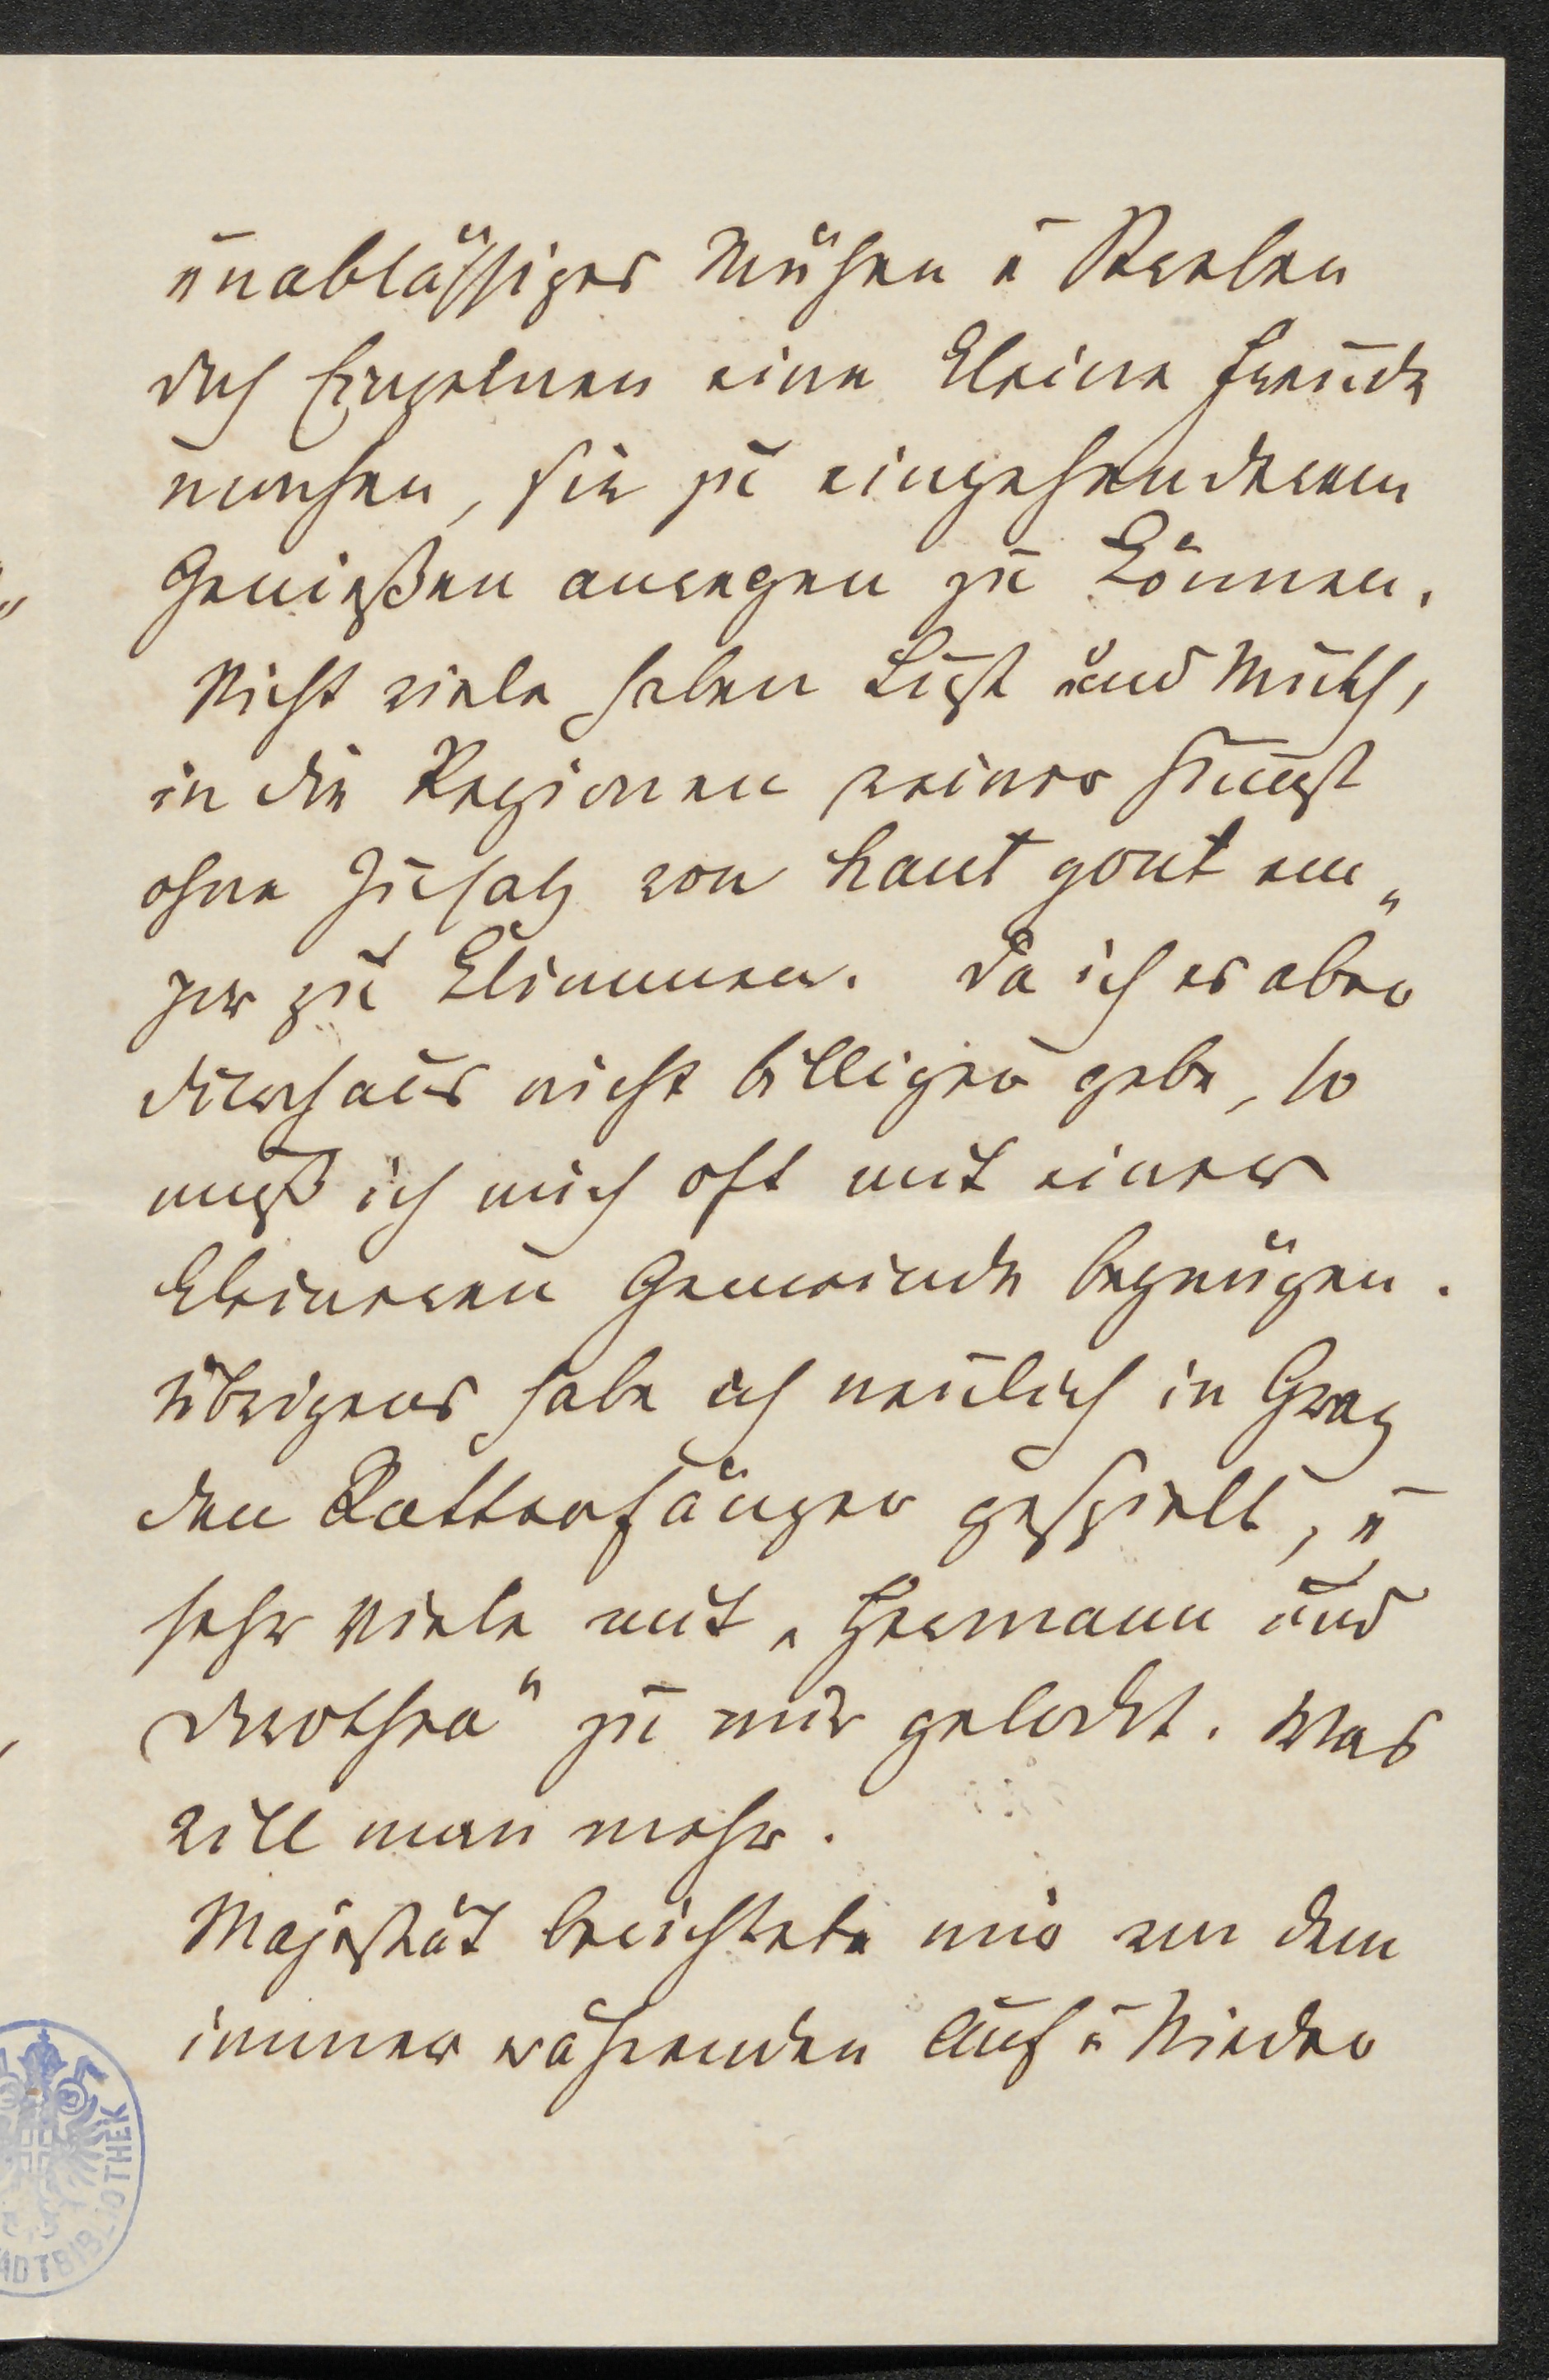 unablässiges Mühen u Streben
doch Einzelnen eine kleine Freude
machen, sie zu eingehenderem
Genießen anregen zu können.
Nicht viele haben Lust und Muth,
in die Regionen reiner Kunst
ohne Zusatz von haut goût em„
por zu klimmen. Da ich es aber
durchaus nicht billiger gebe, so
muß ich mich oft mit einer
kleineren Gemeinde begnügen.
Übrigens habe ich neulich in Graz
den Rattenfänger gespielt, u
sehr Viele mit „Hermann und
Dorothea“ zu mir gelockt. Was
will man mehr.
Majestät berichtete mir von dem
immer währenden Auf u Nieder
STADTBIBLIOTHEK